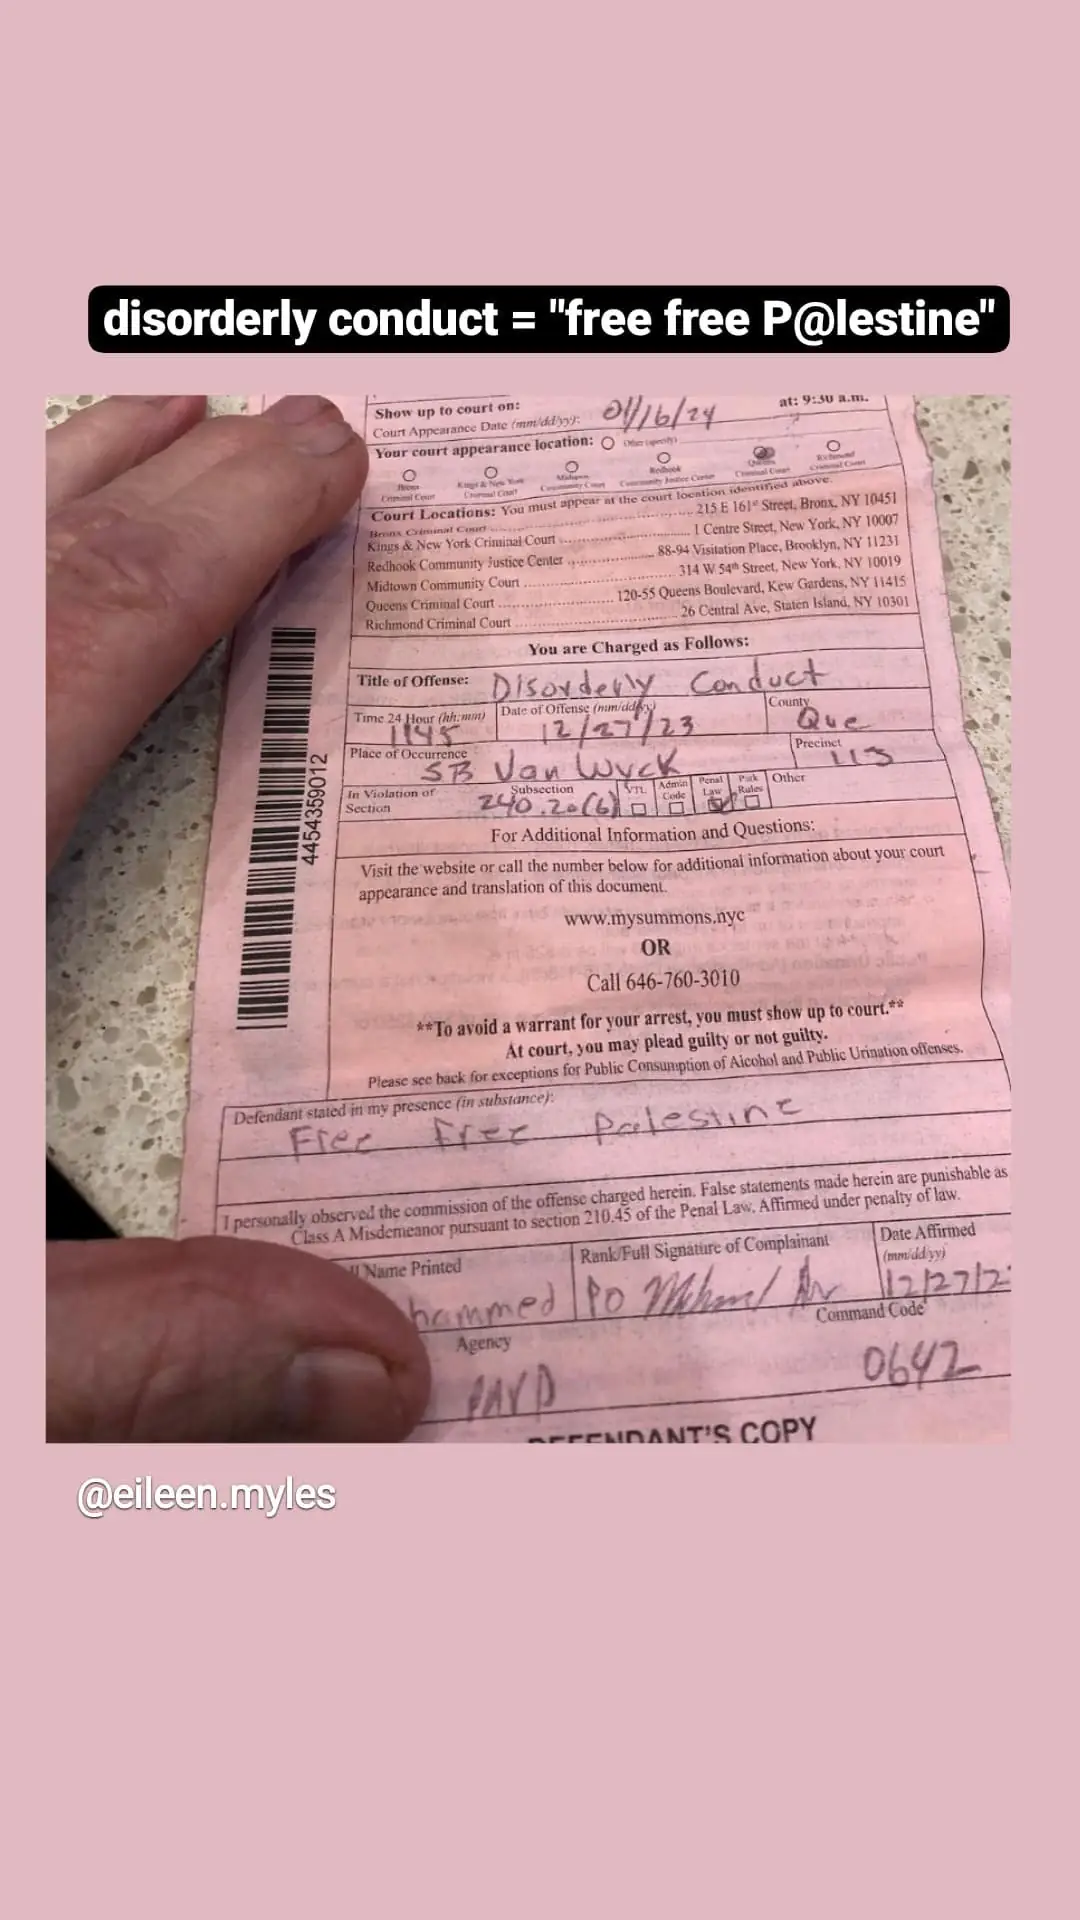 disorderly conduct = "free free P@lestine"
Show up to court on:
Court Appearance Date (mm/dd/yy): 01/16/24 at: 9:30 a.m.
Your court appearance location: Other (specify)
Bronx Criminal Court
Kings & New York Criminal Court
Midtown Community Court
Redhook Community Justice Center
Queens Criminal Court
Richmond Criminal Court
Court Locations: You must appear at the court location identified above.
Bronx Criminal Court 215 E 161st Street, Bronx, NY 10451
Kings & New York Criminal Court 1 Centre Street, New York, NY 10007
Redhook Community Justice Center 88-94 Visitation Place, Brooklyn, NY 11231
Midtown Community Court 314 W 54th Street, New York, NY 10019
Queens Criminal Court 120-55 Queens Boulevard, Kew Gardens, NY 11415
Richmond Criminal Court 26 Central Ave, Staten Island, NY 10301
You are Charged as Follows:
Title of Offense: Disorderly Conduct
Time 24 Hour (hh:mm) Date of Offense (mm/dd/yy) County
1145 12/27/23 Que
Place of Occurrence Precinct
SB Van Wyck 113
In Violation of Section Subsection VTL Admin Code Penal Law Park Rules Other
240.20(6)
4454359012
For Additional Information and Questions:
Visit the website or call the number below for additional information about your court
appearance and translation of this document.
www.mysummons.nyc
OR
Call 646-760-3010
**To avoid a warrant for your arrest, you must show up to court.**
At court, you may plead guilty or not guilty.
Please see back for exceptions for Public Consumption of Alcohol and Public Urination offenses.
Defendant stated in my presence (in substance):
Free Free Palestine
I personally observed the commission of the offense charged herein. False statements made herein are punishable as
Class A Misdemeanor pursuant to section 210.45 of the Penal Law. Affirmed under penalty of law.
Name Printed Rank/Full Signature of Complainant Date Affirmed
(mm/dd/yy)
hammed PO 12/27/2
Agency Command Code
0642
DEFENDANT'S COPY
@eileen.myles